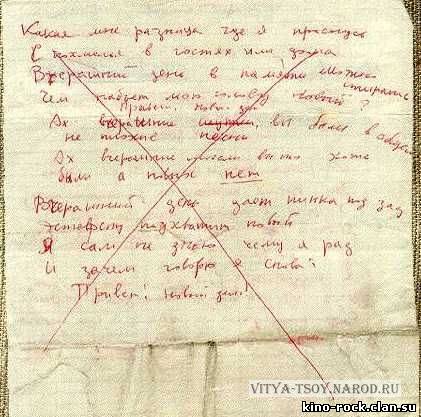 Какая мне разница где я проснусь
С похмелья в гостях или дома
Вчерашний день в памяти
стирается
Чем набьет мою голову новый?
Привет, новый день
Ах вчерашние шутки, вы были в общем
не плохие песни
Ах вчерашние мысли вы то хоть
были а новых нет
Вчерашний день дает пинка под зад
эстафету подхватит новый
Я сам не знаю чему я рад
И зачем говорю я снова:
Привет! Новый день!
VITYA-TSOY.NAROD.RU
kino-rock.clan.su